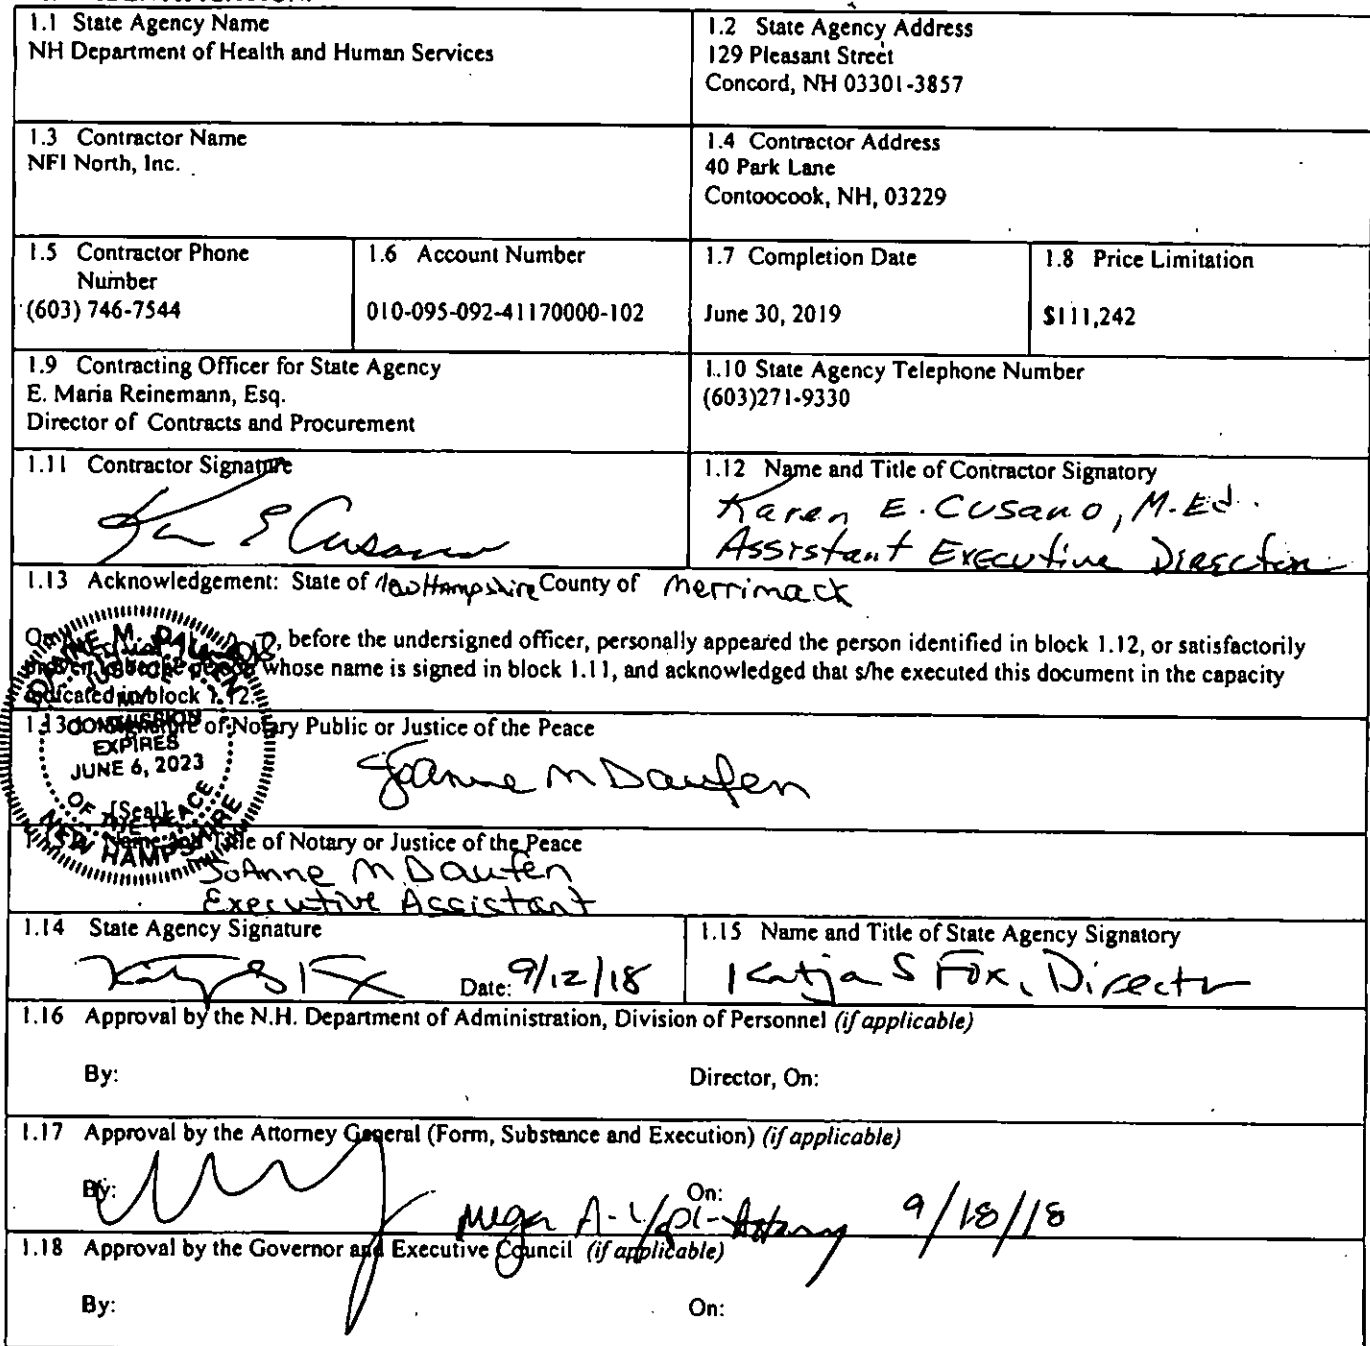 1.1 State Agency Name
NH Department of Health and Human Services
1.2 State Agency Address
129 Pleasant Street
Concord, NH 03301-3857
1.3 Contractor Name
NFI North, Inc.
1.4 Contractor Address
40 Park Lane
Contoocook, NH, 03229
1.5 Contractor Phone
Number
(603) 746-7544
1.6 Account Number
010-095-092-41170000-102
1.7 Completion Date
June 30, 2019
1.8 Price Limitation
$111,242
1.9 Contracting Officer for State Agency
E. Maria Reinemann, Esq.
Director of Contracts and Procurement
1.10 State Agency Telephone Number
(603)271-9330
1.11 Contractor Signature
K E Cusano
1.12 Name and Title of Contractor Signatory
Karen E. Cusano, M.Ed.
Assistant Executive Director
1.13 Acknowledgement: State of New Hampshire County of Merrimack
On , before the undersigned officer, personally appeared the person identified in block 1.12, or satisfactorily
whose name is signed in block 1.11, and acknowledged that s/he executed this document in the capacity
indicated in block 1.12.
of Notary Public or Justice of the Peace
JOANNE M. DAUFEN
JUSTICE
MY
COMMISSION
EXPIRES
JUNE 6, 2023
OF THE PEACE
NEW HAMPSHIRE
[Seal]
Joanne M Daufen
Title of Notary or Justice of the Peace
JoAnne M Daufen
Executive Assistant
1.14 State Agency Signature
Date: 9/12/18
1.15 Name and Title of State Agency Signatory
Katja S Fox, Director
1.16 Approval by the N.H. Department of Administration, Division of Personnel (if applicable)
By:
Director, On:
1.17 Approval by the Attorney General (Form, Substance and Execution) (if applicable)
By:
On:
9/18/18
1.18 Approval by the Governor and Executive Council (if applicable)
By:
On: